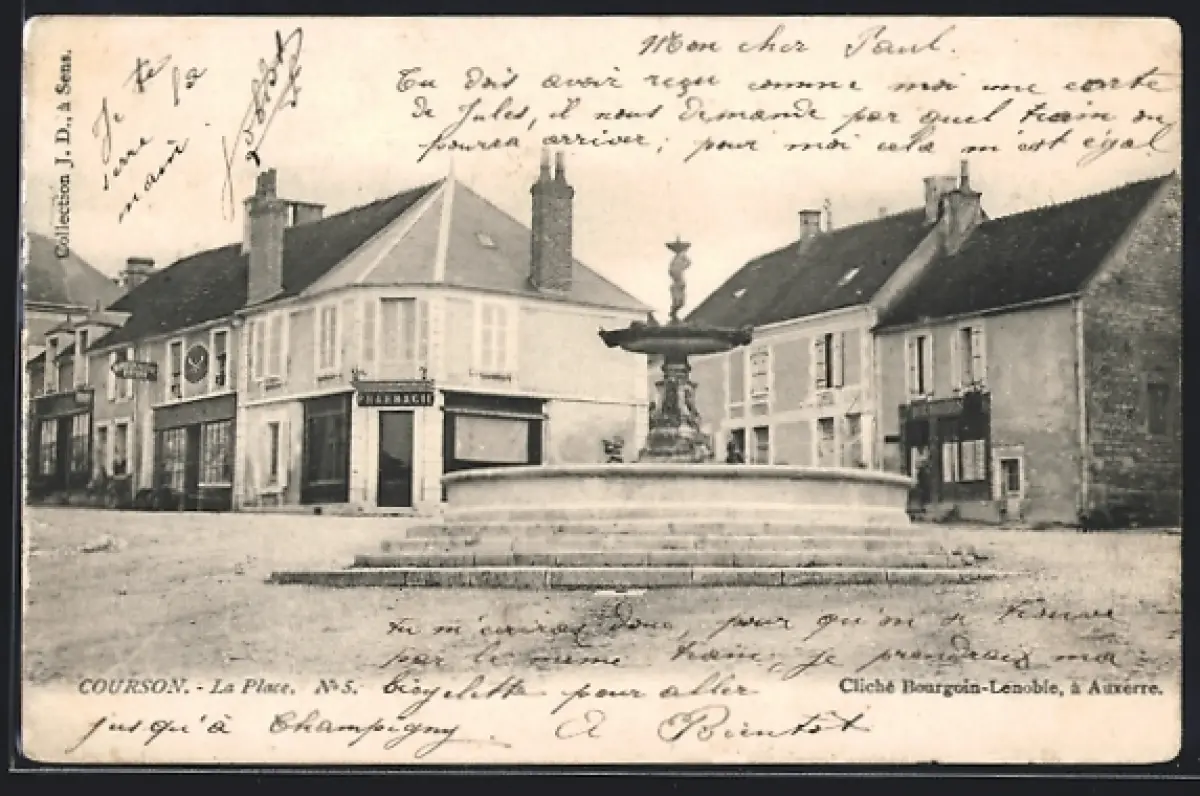 Mon cher Paul.
Tu dois avoir reçu comme moi une carte
de Jules, il nous demande par quel train on
pourra arriver; pour moi cela m'est égal
Collection J. D., à Sens.
Je te
serre la
main.
PHARMACIE
tu m'écriras donc, pour qu'on se trouve
par le même train, je prendrais ma
COURSON. - La Place. N° 5.
bicyclette pour aller
Cliché Bourgoin-Lenoble, à Auxerre.
jusqu'à Champigny. A Bientôt